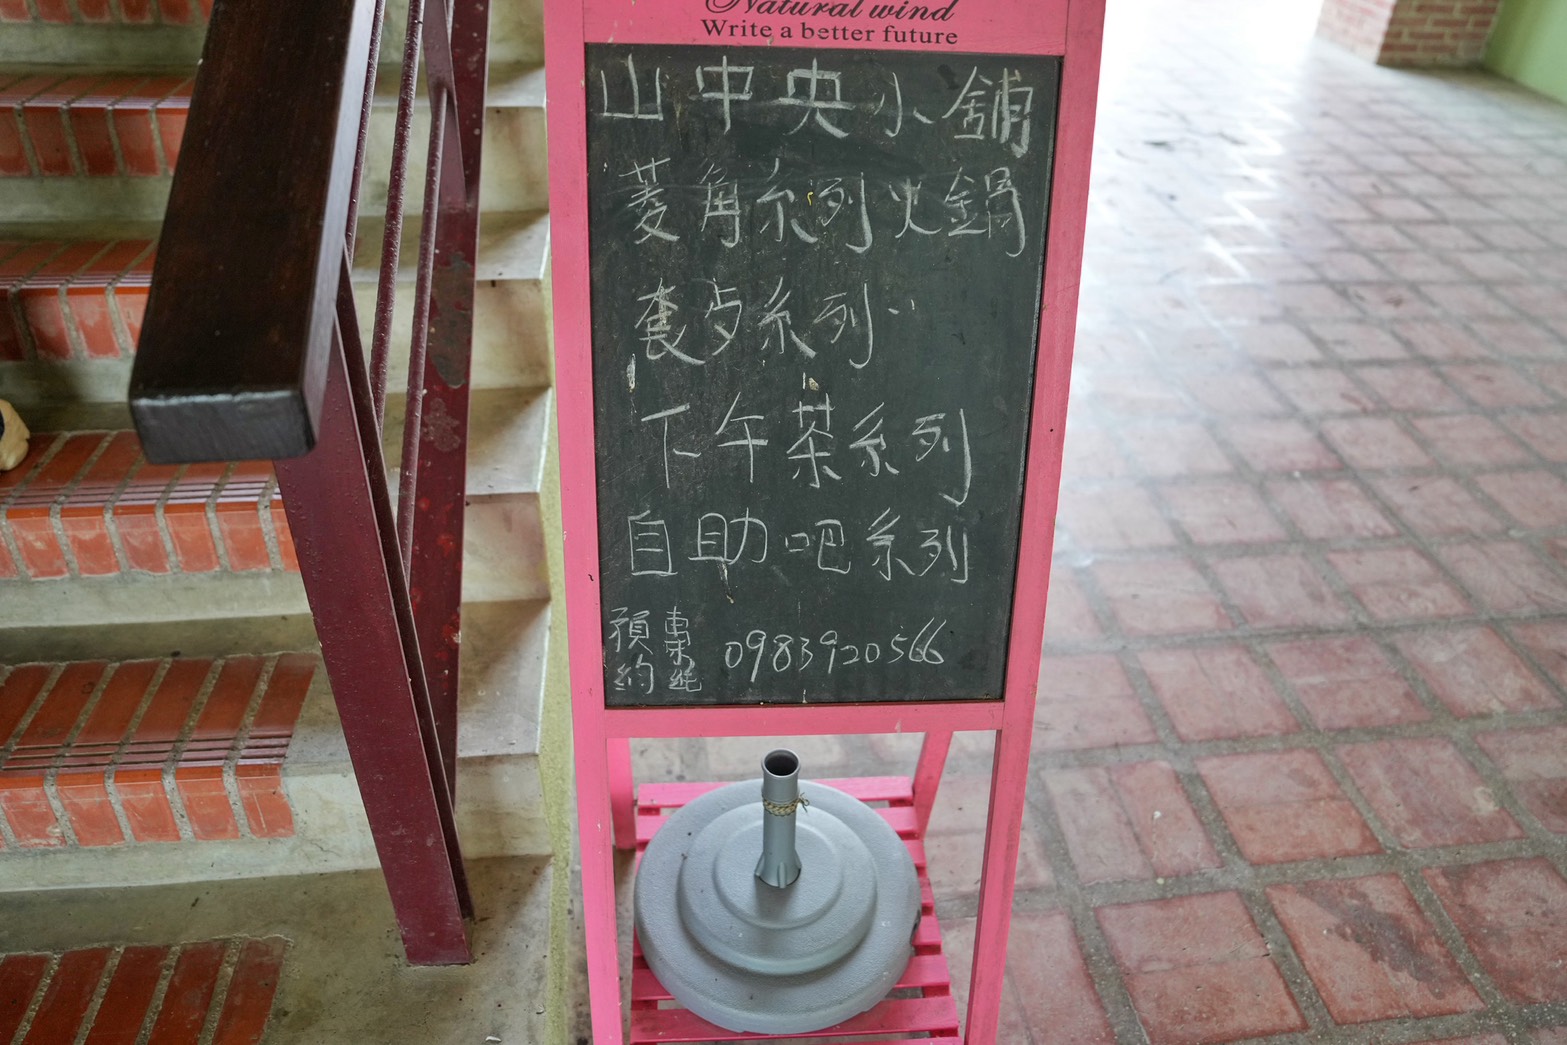 Natural wind
Write a better future
山中央小舖
菱角系列火鍋
下午茶系列
自助吧系列
預約專線 0983920566